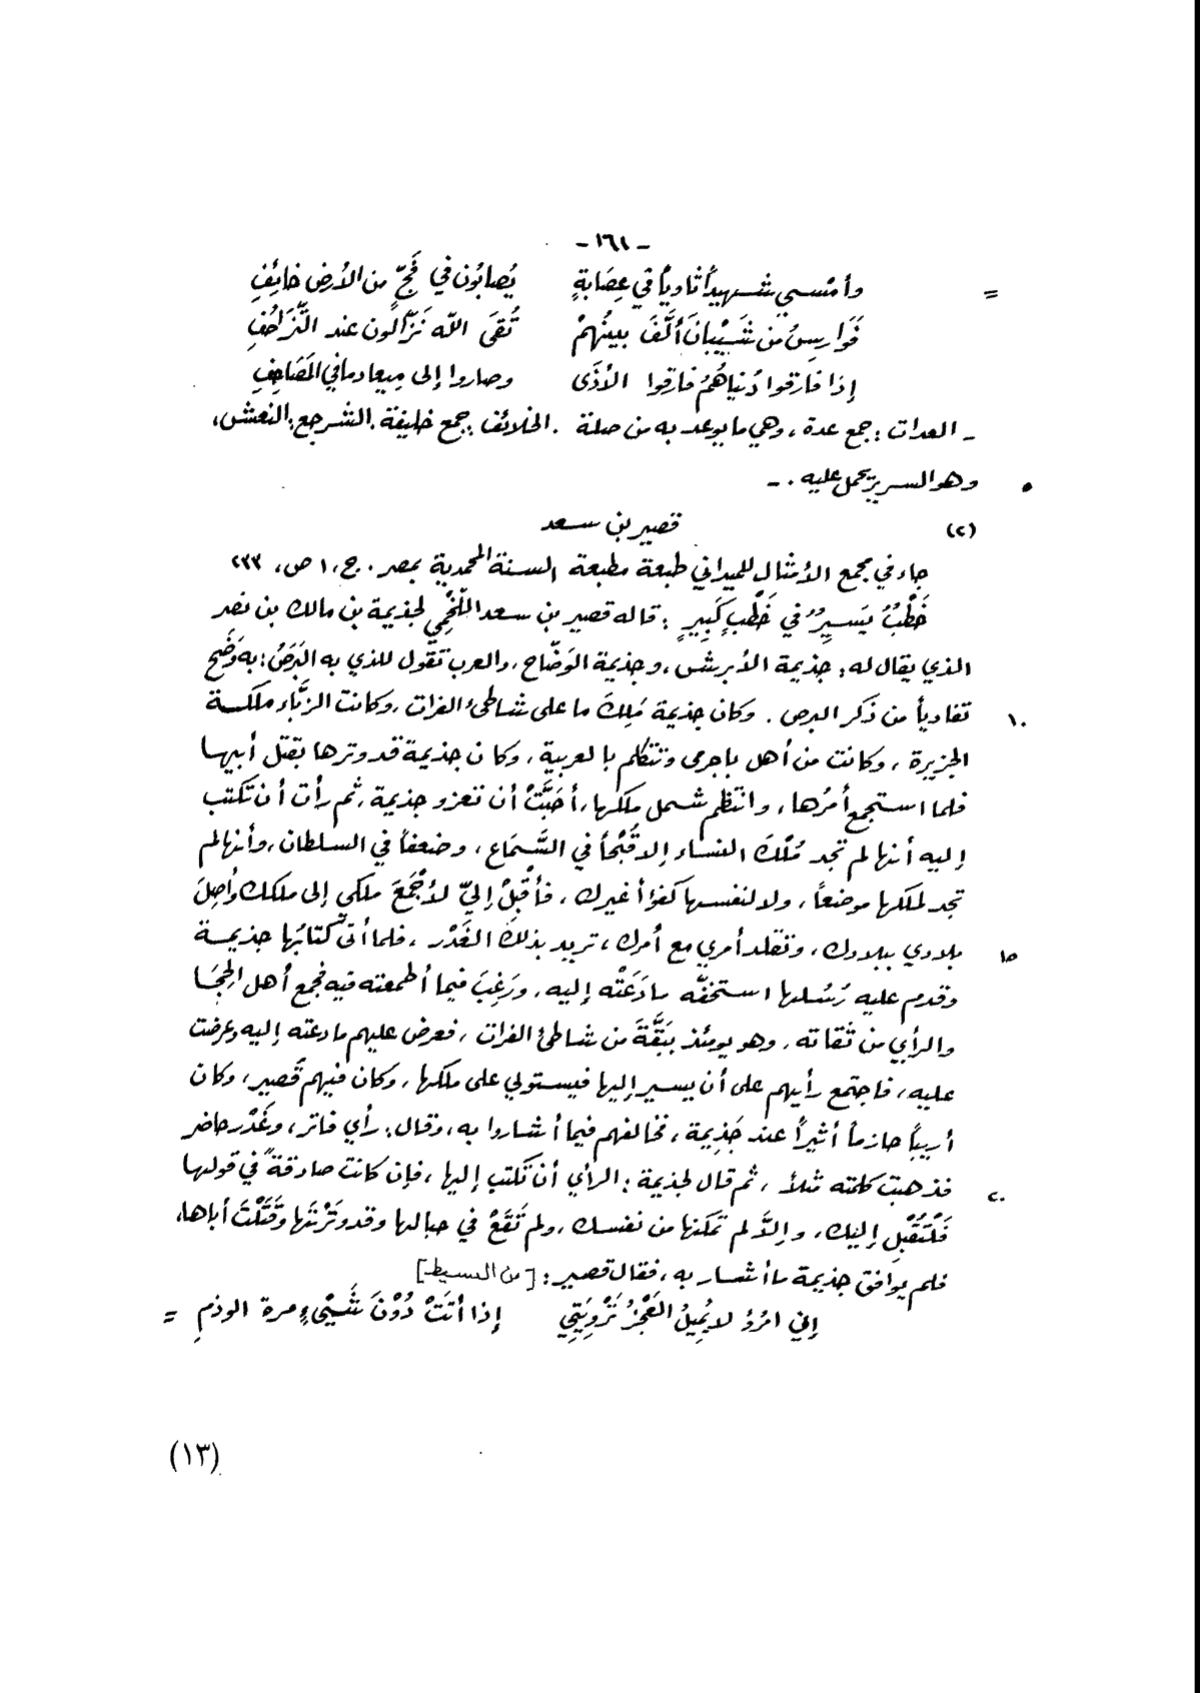 - ١٦١ -
= وأمْسي شهيداً ثاوياً في عِصَابةٍ يُصابُون في فَجٍّ من الأرض خائِفِ
فَوَارِسُ من شَيْبانَ ألَّفَ بينَهُمْ تُقَى اللّه نَزَّالون عند التَّزَاحُفِ
إذا فارقوا دُنياهُمُ فارقوا الأذَى وصاروا إلى مِيعاد ما في المَصَاحِفِ
- العدات : جمع عدة ، وهي ما يوعد به من صلة . الخلائف : جمع خليفة . الشرجع : النعش ،
٥ وهو السرير يحمل عليه . -
(٢) قصير بن سعد
جاء في مجمع الأمثال للميداني طبعة مطبعة السنة المحمدية بمصر . ج ، ١ ص ، ٢٣٣
خَطْبٌ يَسيِرٌ في خَطْبٍ كَبِيرٍ : قاله قصير بن سعد اللَّخْمِي لجذيمة بن مالك بن نصر
الذي يقال له : جذيمة الأبرش ، وجذيمة الوَضّاح ، والعرب تقول للذي به البَرَصُ : به وَضَح
١٠ تفادياً من ذكر البرص . وكان جذيمة مَلِكَ ما على شاطئ الفرات ، وكانت الزبَّاء ملكة
الجزيرة ، وكانت من أهل باجرمى وتتكلم بالعربية ، وكان جذيمة قد وترها بقتل أبيها
فلما استجمع أمرُها ، وانتظم شمل ملكها ، أحَبَّتْ أن تغزو جذيمة ، ثم رأت أن تكتب
إليه أنها لم تجد مُلْكَ النساء إلا قُبْحاً في السَّمَاع ، وضعفاً في السلطان ، وأنها لم
تجد لملكها موضعاً ، ولا لنفسها كفؤاً غيرك ، فأقْبِلْ إليّ لأجْمَعَ ملكي إلى ملكك وأصِلَ
١٥ بلادي ببلادك ، وتقلد أمري مع أمرك ، تريد بذلك الغَدْر ، فلما أتى كتابُها جذيمة
وقدم عليه رُسُلها استخفّه ما دَعَتْه إليه ، ورَغِبَ فيما أطمعته فيه فجمع أهل الحِجَا
والرأي من ثقاته ، وهو يومئذ ببَقَّةَ من شاطئ الفرات ، فعرض عليهم ما دعته إليه وعرضت
عليه ، فاجتمع رأيهم على أن يسير إليها فيستولي على ملكها ، وكان فيهم قَصير ، وكان
أريباً حازماً أثيراً عند جَذِيمة ، فخالفهم فيما أشاروا به ، وقال : رأي فاتر ، وغَدْر حاضر
٢٠ فذهبت كلمته مثلاً ، ثم قال لجذيمة : الرأي أن تكتب إليها ، فإن كانت صادقةً في قولها
فَلْتُقْبِلْ إليك ، وإلاَّ لم تمكنها من نفسك ، ولم تَقَعْ في حبالها وقد وَتَرْتَها وقَتَلْتَ أباها ،
فلم يوافق جذيمة ما أشار به ، فقال قصير : [ من البسيط ]
إني امرُؤٌ لا يُمِيلُ العَجْزُ تَرْوِيَتِي إذا أتَتْ دُوْنَ شَيْيءٍ مرة الوذمِ =
(١٣)